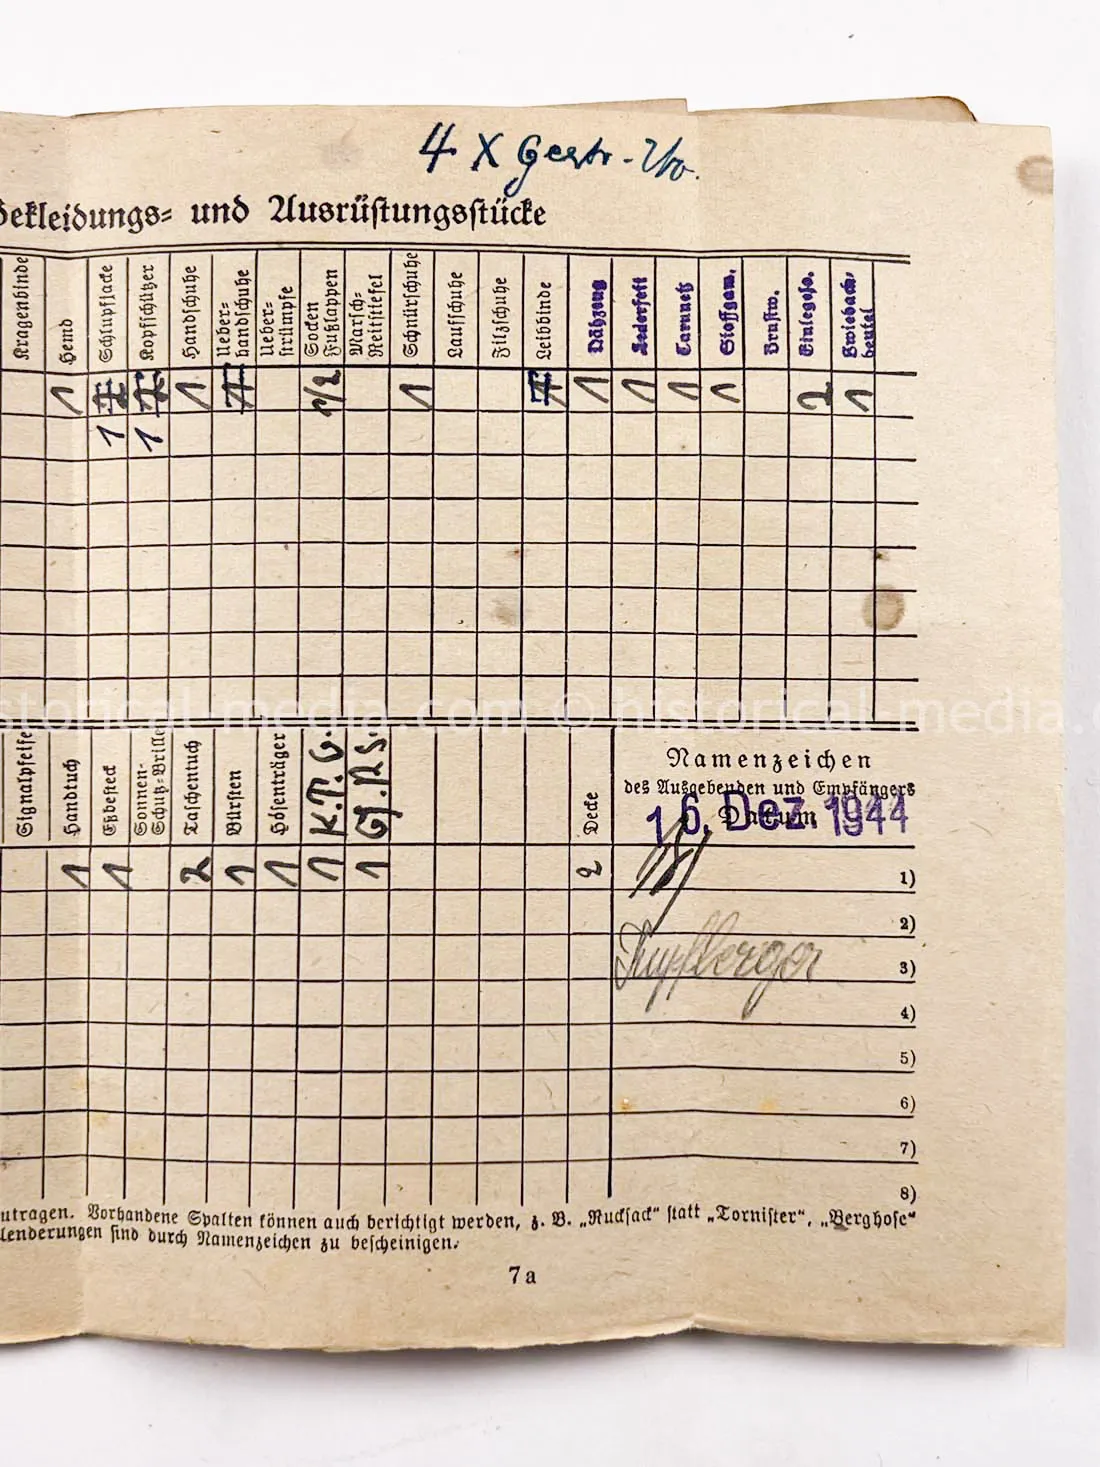 4 X Gestr.
Bekleidungs= und Ausrüstungsstücke
Kragenbinde
Hemd
Schlupfjacke
Kopfschützer
Handschuhe
Ueber-
handschuhe
Ueber-
strümpfe
Socken
Fußlappen
Marsch-
Reitstiefel
Schnürschuhe
Laufschuhe
Filzschuhe
Leibbinde
Nähzeug
Lederfett
Tarnnetz
Stoffgam.
Brustw.
Einlegeso.
Zwieback-
beutel
1 1 1 1 1 1 1 2 1
1 1
historical-media.com © historical-media.c
Signalpfeife
Handtuch
Eßbesteck
Sonnen-
Schutz-Brille
Taschentuch
Bürsten
Hosenträger
K.T.G.
Decke
Namenzeichen
des Ausgebenden und Empfängers
Datum
16. Dez. 1944
1 1 2 1 1 1 1 2
1)
2)
3)
4)
5)
6)
7)
8)
utragen. Vorhandene Spalten können auch berichtigt werden, z. B. „Rucksack“ statt „Tornister“, „Berghose“
lenderungen sind durch Namenzeichen zu bescheinigen.
7a